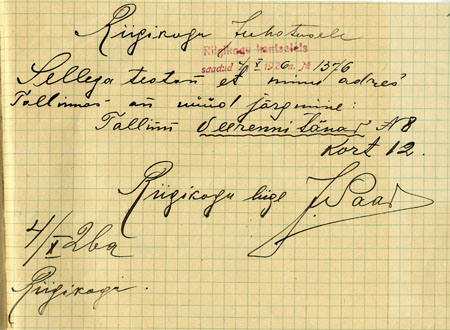 Riigikogu Juhatusele
Riigikogu kantseleis
saadud 4 X 1926 a. № 1376
Sellega teatan et minu adres
Tallinnas on nüüd järgmine:
Tallinn Veerenni tänav № 8
Kort 12.
Riigikogu liige J. Paar
4/X 26 a
Riigikogu.